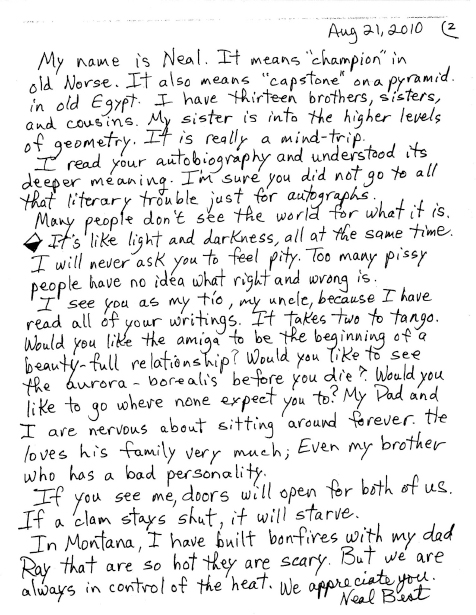 Aug 21, 2010 (2
My name is Neal. It means "champion" in
old Norse. It also means "capstone" on a pyramid.
in old Egypt. I have thirteen brothers, sisters,
and cousins. My sister is into the higher levels
of geometry. It is really a mind-trip.
I read your autobiography and understood its
deeper meaning. I'm sure you did not go to all
that literary trouble just for autographs.
Many people don't see the world for what it is.
It's like light and darkness, all at the same time.
I will never ask you to feel pity. Too many pissy
people have no idea what right and wrong is.
I see you as my tío, my uncle, because I have
read all of your writings. It takes two to tango.
Would you like the amiga to be the beginning of a
beauty-full relationship? Would you like to see
the aurora-borealis before you die? Would you
like to go where none expect you to? My Dad and
I are nervous about sitting around forever. He
loves his family very much; Even my brother
who has a bad personality.
If you see me, doors will open for both of us.
If a clam stays shut, it will starve.
In Montana, I have built bonfires with my dad
Ray that are so hot they are scary. But we are
always in control of the heat. We appreciate you.
Neal Best